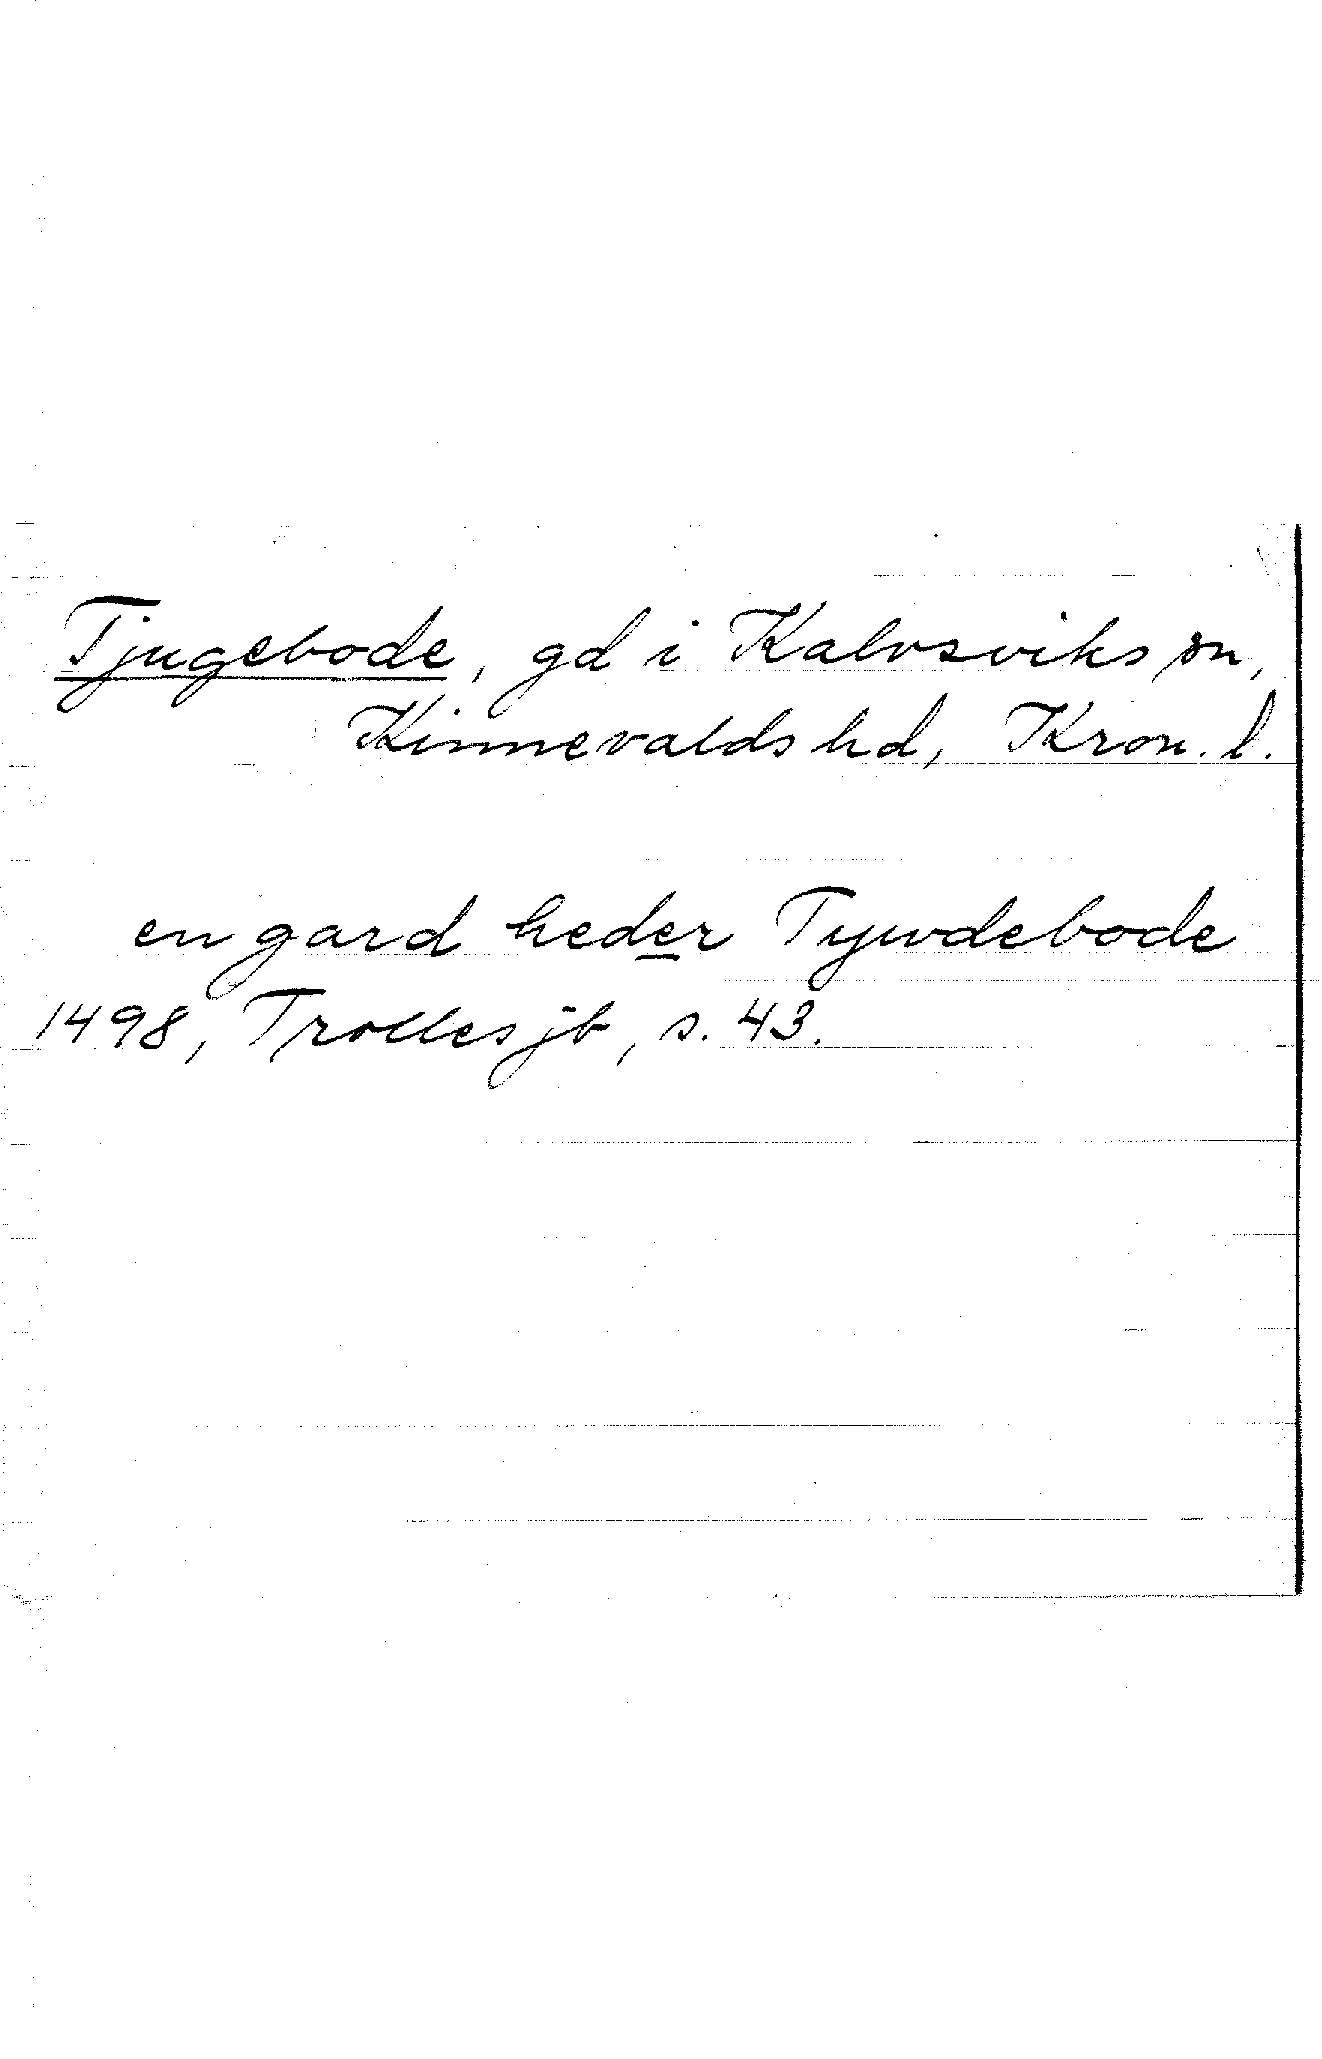 Tjugebode, gd i Kalvsviks sn,
Kinnevalds hd, Kron. l.
en gard heder Tywdebode
1498, Trolles jb, s. 43.